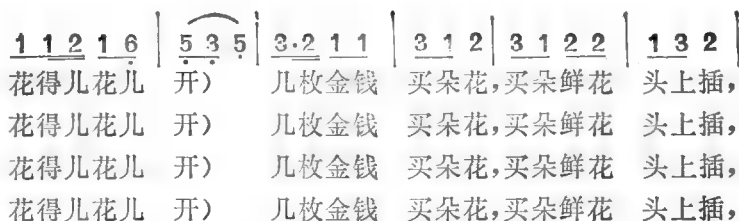 1 1 2 1 6 | 5 3 5 | 3·2 1 1 | 3 1 2 | 3 1 2 2 | 1 3 2 |
花得儿花儿 开) 几枚金钱 买朵花,买朵鲜花 头上插,
花得儿花儿 开) 几枚金钱 买朵花,买朵鲜花 头上插,
花得儿花儿 开) 几枚金钱 买朵花,买朵鲜花 头上插,
花得儿花儿 开) 几枚金钱 买朵花,买朵鲜花 头上插,